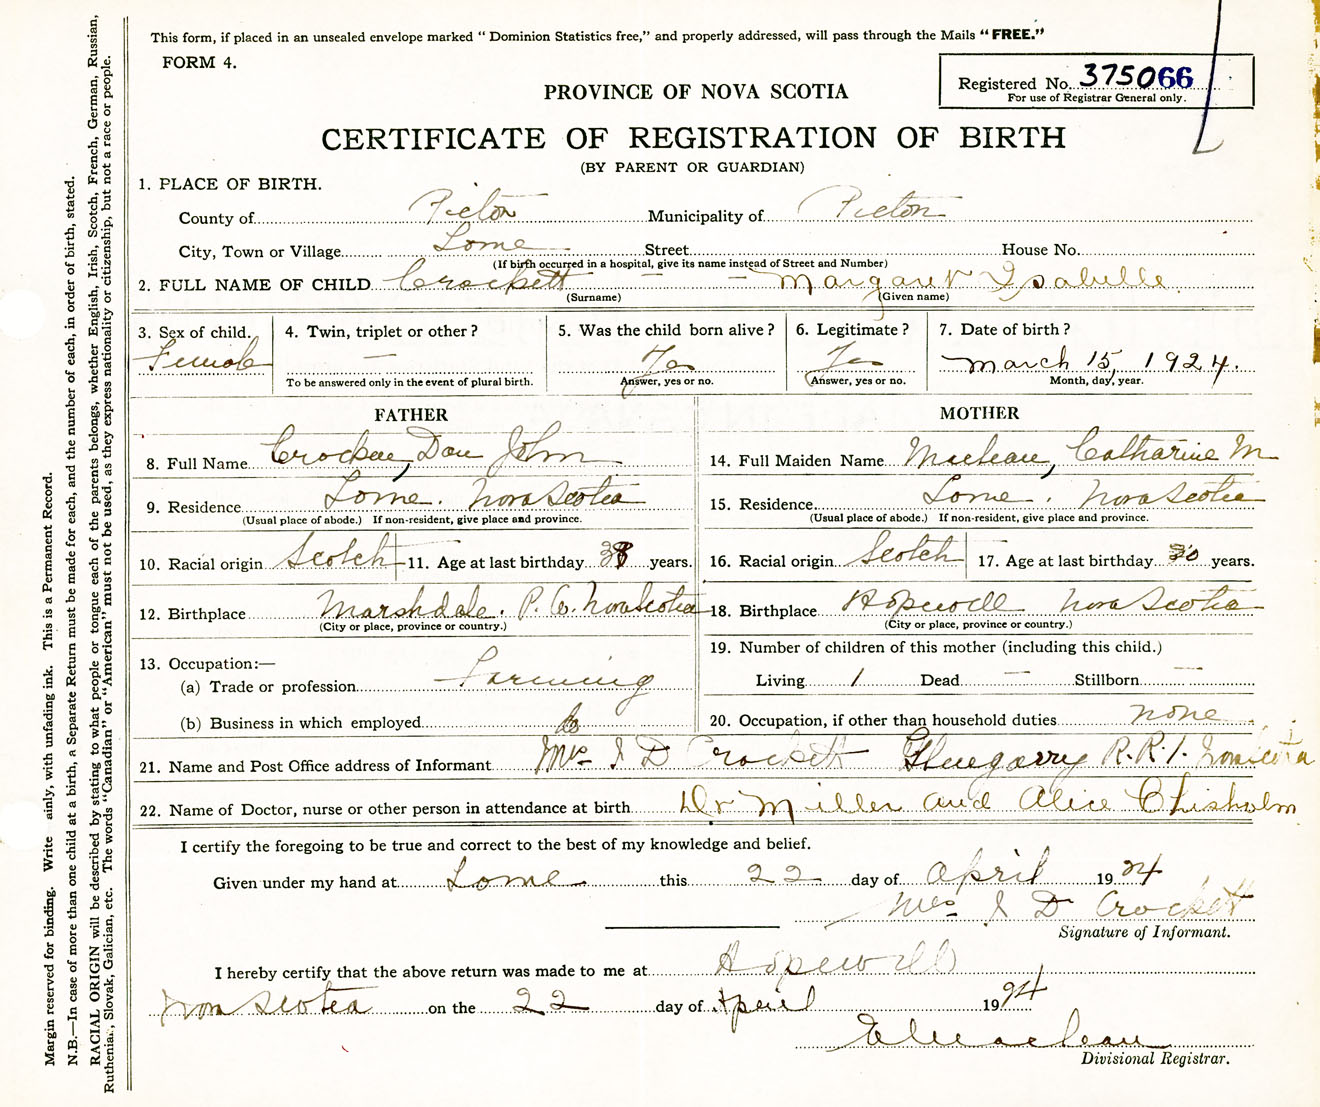 This form, if placed in an unsealed envelope marked " Dominion Statistics free," and properly addressed, will pass through the Mails "FREE."
FORM 4.
Registered No. 375066
For use of Registrar General only.
PROVINCE OF NOVA SCOTIA
CERTIFICATE OF REGISTRATION OF BIRTH
(BY PARENT OR GUARDIAN)
1. PLACE OF BIRTH.
County of Pictou Municipality of Pictou
City, Town or Village Lorne Street House No.
(If birth occurred in a hospital, give its name instead of Street and Number)
2. FULL NAME OF CHILD Crockett - Margaret Isabelle
(Surname) (Given name)
3. Sex of child. 4. Twin, triplet or other? 5. Was the child born alive? 6. Legitimate? 7. Date of birth?
Female — Yes Yes March 15, 1924.
To be answered only in the event of plural birth. Answer, yes or no. Answer, yes or no. Month, day, year.
FATHER MOTHER
8. Full Name Crockett, Dan John 14. Full Maiden Name MacLean, Catharine M
9. Residence Lorne. Nova Scotia 15. Residence Lorne. Nova Scotia
(Usual place of abode.) If non-resident, give place and province. (Usual place of abode.) If non-resident, give place and province.
10. Racial origin Scotch 11. Age at last birthday years. 16. Racial origin Scotch 17. Age at last birthday 30 years.
12. Birthplace Marshdale. P. Co. Nova Scotia 18. Birthplace Hopewell Nova Scotia
(City or place, province or country.) (City or place, province or country.)
13. Occupation:— 19. Number of children of this mother (including this child.)
(a) Trade or profession Farming Living 1 Dead — Stillborn —
(b) Business in which employed do 20. Occupation, if other than household duties none.
21. Name and Post Office address of Informant Mrs J D Crockett Glengarry R.R.1. Nova Scotia
22. Name of Doctor, nurse or other person in attendance at birth Dr Miller and Alice Chisholm
I certify the foregoing to be true and correct to the best of my knowledge and belief.
Given under my hand at Lorne this 22 day of April 1924
Mrs J D Crockett
Signature of Informant.
I hereby certify that the above return was made to me at Hopewell
Nova Scotia on the 22 day of April 1924
MacLean
Divisional Registrar.
Margin reserved for binding. Write ainly, with unfading ink. This is a Permanent Record.
N.B.—In case of more than one child at a birth, a Separate Return must be made for each, and the number of each, in order of birth, stated.
RACIAL ORIGIN will be described by stating to what people or tongue each of the parents belongs, whether English, Irish, Scotch, French, German, Russian,
Ruthenian, Slovak, Galician, etc. The words "Canadian" or "American" must not be used, as they express nationality or citizenship, but not a race or people.